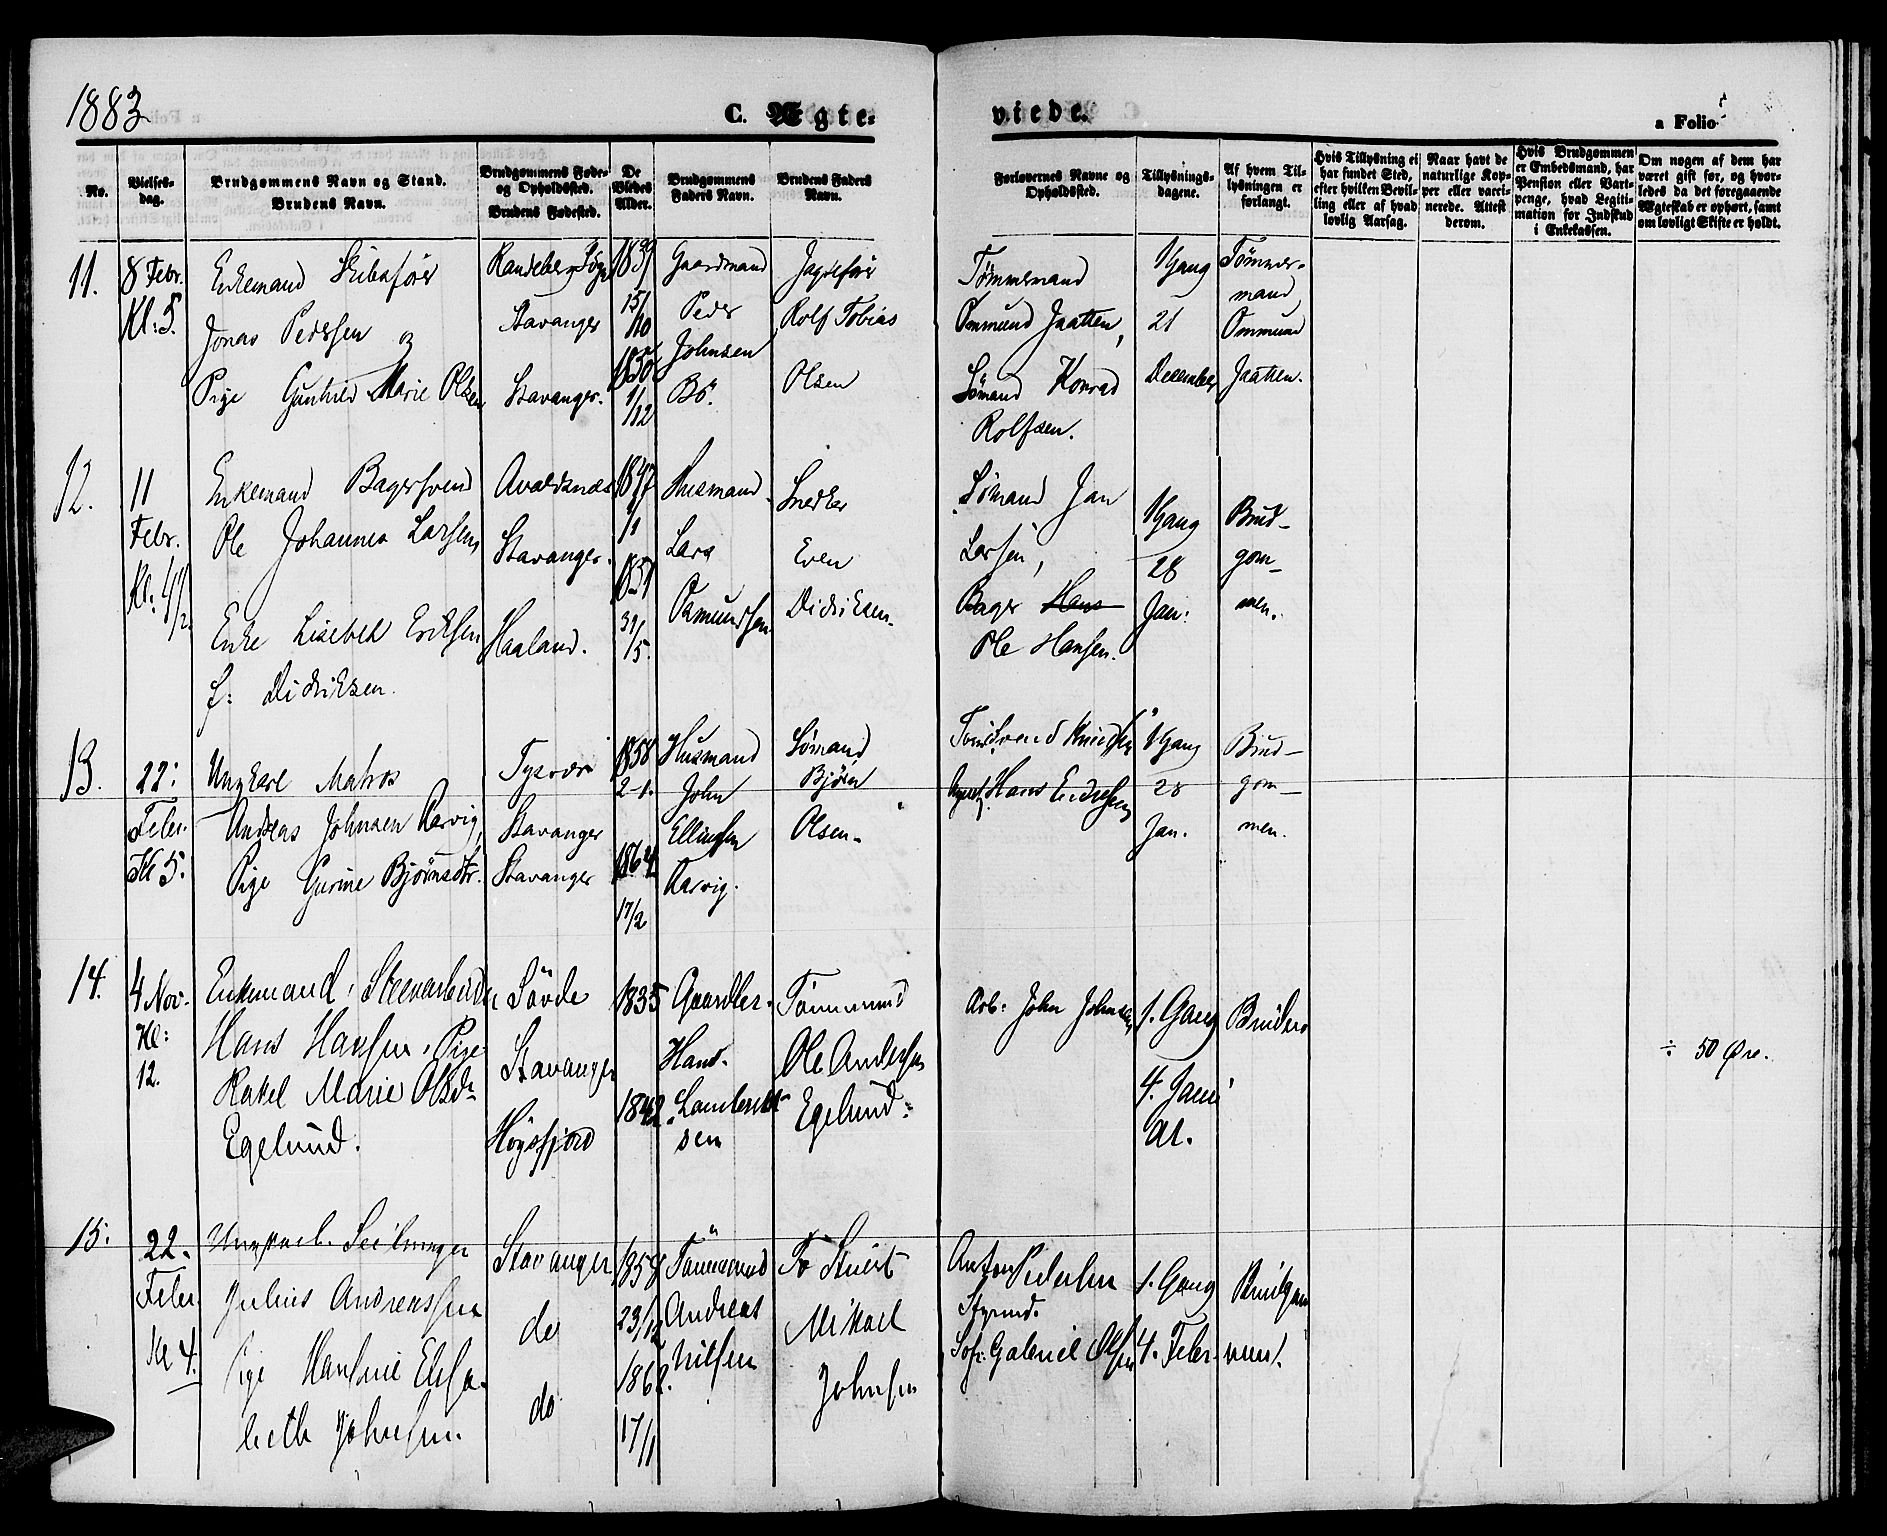 1883
C. Ægte-
viede.
a Folio
No.
Vielses-
dag.
Brudgommens Navn og Stand.
Brudens Navn.
Brudgommens Føde-
og Opholdssted.
Brudens Fødested.
De
Viedes
Alder.
Brudgommens
Faders Navn.
Brudens Faders
Navn.
Forlovernes Navne og
Opholdssted.
Tillysnings-
dagene.
Af hvem Til-
lysningen er
forlangt.
Hvis Tillysning ei
har fundet Sted,
efter hvilken Bevil-
ling eller af hvad
lovlig Aarsag.
Naar havt de
naturlige Kop-
per eller vacci-
nerede. Attest
derom.
Hvis Brudgommen
er Embedsmand, har
Pension eller Vart-
penge, hvad Legiti-
mation for Indskud
i Enkekassen.
Om nogen af dem har
været gift før, og hvor-
ledes da det foregaaende
Ægteskab er ophørt, samt
om lovligt Skifte er holdt.
11.
8 Febr.
Kl: 5.
Enkemand Skibsfører
Jonas Pedersen og
Pige Gunhild Marie Olsen
Randeberg Sogn
Stavanger
Stavanger.
1839
15/10
1850
1/12
Gaardmand
Peder
Johnsen
Bö.
Jagtefører
Rolf Tobias
Olsen
Tømmermand
Ommund Jaatten,
Sømand Konrad
Rolfsen.
1 Gang
21
December
Tømmer-
mand
Ommund
Jaatten.
12.
11
Febr.
Kl: 4 1/2.
Enkemand Bagersvend
Ole Johannes Larsen,
Enke Lisebet Eriksen
f: Didriksen.
Avaldsnes
Stavanger.
Haaland.
1847
1851
31/5.
Husmand
Lars
Osmundsen
Snedker
Even
Didriksen.
Sømand Jan
Larsen,
Bager Hans
Ole Hansen.
1 Gang
28
Jan:
Brud-
gom-
men.
13.
22:
Febr.
Kl 5.
Ungkarl Matros
Andreas Johnsen Aarvig,
Pige Gurine Bjørnsdtr.
Tysvær
Stavanger
Stavanger
1858
2-1.
1864
17/2
Husmand
John
Ellingsen
Aarvig.
Sømand
Bjørn
Olsen.
Svend Knudsen
Hans Endresen
1 Gang
28
Jan.
Brud-
gom-
men.
14.
4 Nov.
Kl:
12.
Enkemand, Steenarbeider
Hans Hansen, Pige
Rakel Marie Olsdr
Egelund.
Søvde
Stavanger
Høgsfjord
1835
1842
Gaardbr.
Hans
Lambrikt-
sen
Tømmermd
Ole Andersen
Egelund.
Arb: John Johnsen
1. Gang
4. Janu
ar.
÷ 50 Øre.
15.
22.
Feber
Kl 4.
Ungkarl. Seilmager
Julius Andreassen
Pige Hansine Elisa-
beth Johnsen.
Stavanger
do
do
1858
23/12
1862.
17/1
Tømmermd
Andreas
Nilsen
Mikael
Johnsen
Anton Pedersen
Styrmd.
Gabriel Olsen
1. Gang
4. Feber
Brudgom
men.